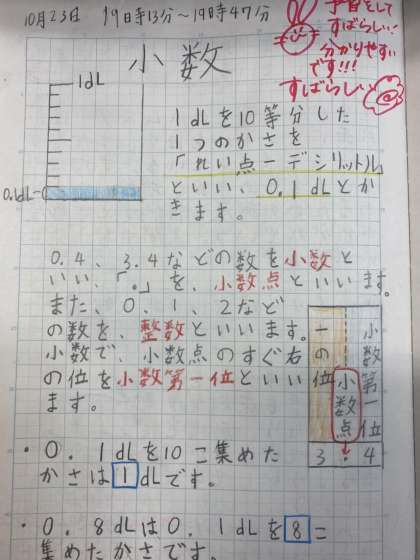 10月23日 19時13分～19時47分
予習をして
すばらしい!
分かりやすい
です!!!
すばらしい
小数
1dL
0.1dL
1dLを10等分した
1つのかさを
「れい点一デシリットル
といい、0.1dLとか
きます。
0.4、3.4などの数を小数と
いい、「.」を、小数点といいます。
また、0、1、2など
の数を、整数といいます。
小数で、小数点のすぐ右
の位を小数第一位といい
ます。
一の位
小数点
小数第一位
3.4
・0.1dLを10こ集めた
かさは1dLです。
・0.8dLは0.1dLを8こ
集めたかさです。